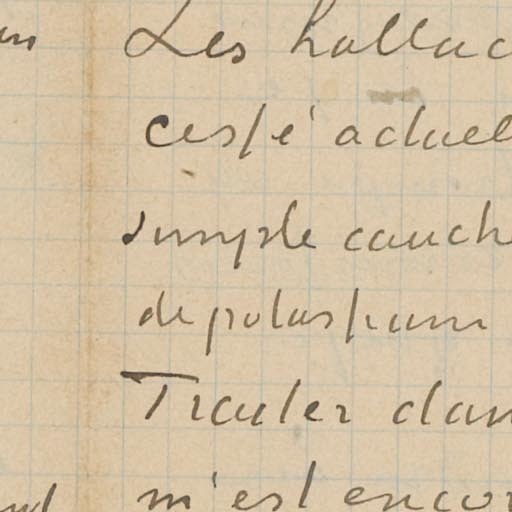 Les halluc
cessé actuel
simple cauche
de potassium
Traiter dan
m'est encor